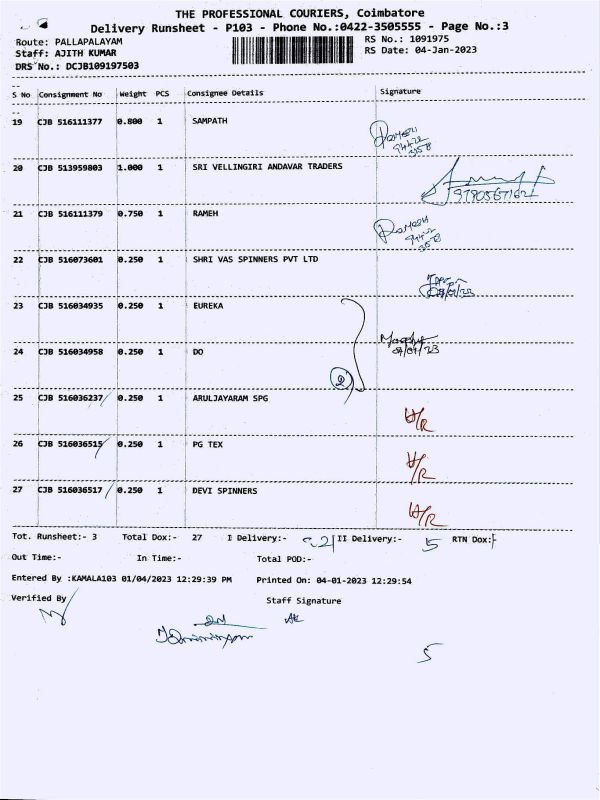 THE PROFESSIONAL COURIERS, Coimbatore
Delivery Runsheet - P103 - Phone No.:0422-3505555 - Page No.:3
Route: PALLAPALAYAM RS No.: 1091975
Staff: AJITH KUMAR RS Date: 04-Jan-2023
DRS No.: DCJB109197503
S No Consignment No Weight PCS Consignee Details Signature
19 CJB 516111377 0.800 1 SAMPATH
20 CJB 513959803 1.000 1 SRI VELLINGIRI ANDAVAR TRADERS
21 CJB 516111379 0.750 1 RAMEH
22 CJB 516073601 0.250 1 SHRI VAS SPINNERS PVT LTD
23 CJB 516034935 0.250 1 EUREKA
24 CJB 516034958 0.250 1 DO
2
25 CJB 516036237 0.250 1 ARULJAYARAM SPG
26 CJB 516036515 0.250 1 PG TEX
27 CJB 516036517 0.250 1 DEVI SPINNERS
Tot. Runsheet:- 3 Total Dox:- 27 I Delivery:- 21 II Delivery:- 5 RTN Dox:-
Out Time:- In Time:- Total POD:-
Entered By :KAMALA103 01/04/2023 12:29:39 PM Printed On: 04-01-2023 12:29:54
Verified By Staff Signature
5